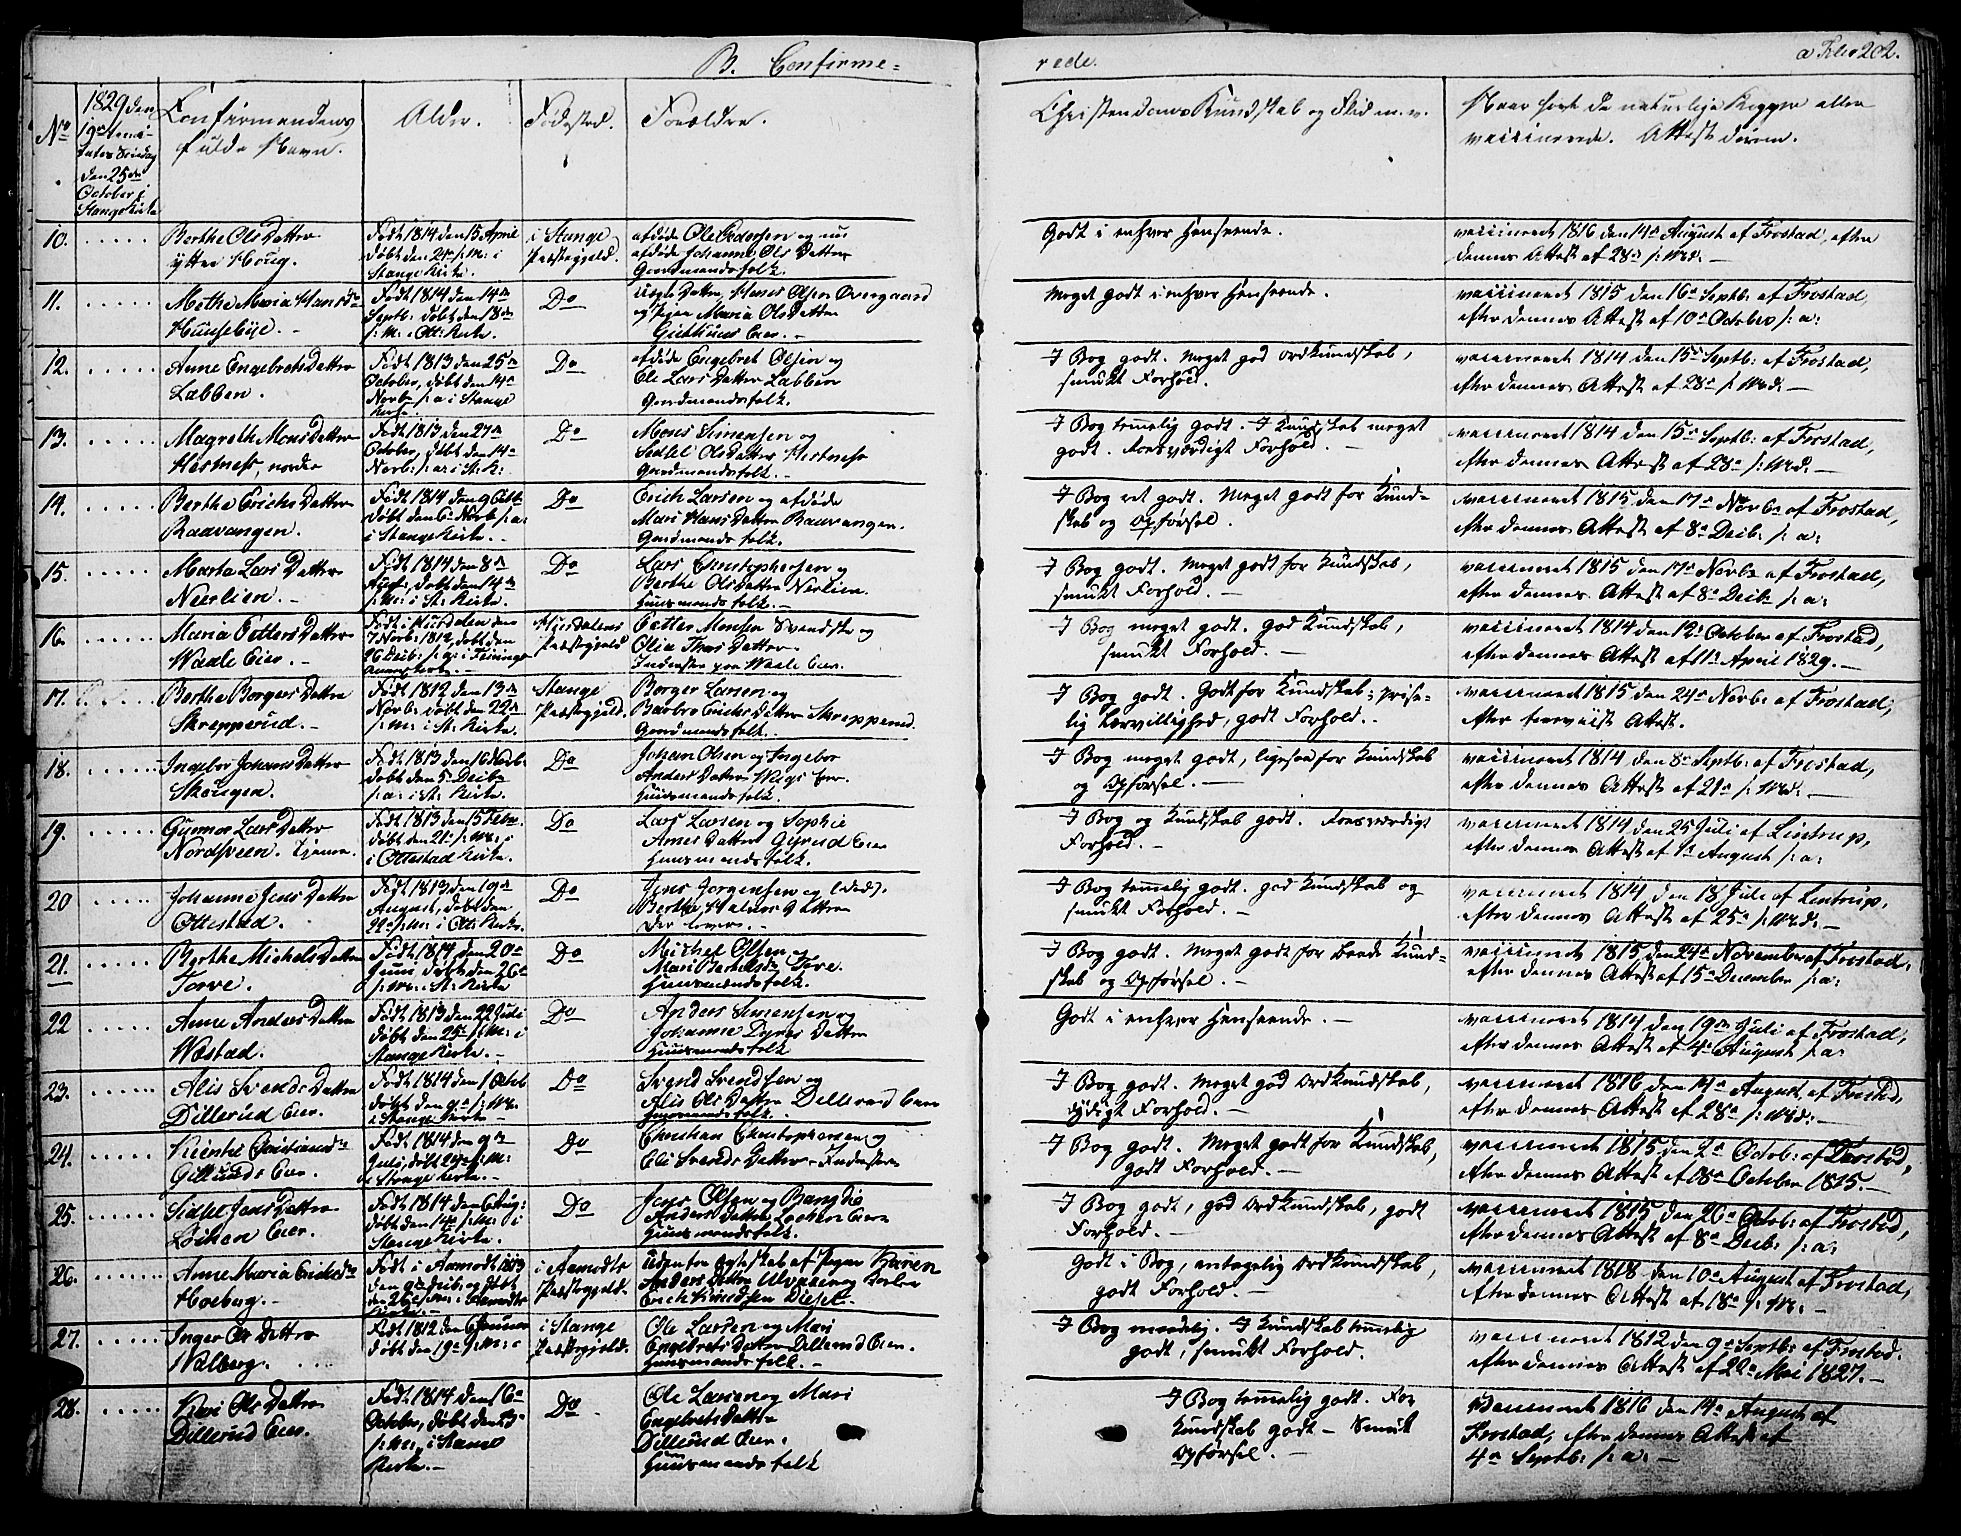 B. Confirme=
rede.
a Folio 202.
No
1829 den
19de
Søndag
den 25de
October i
Stange Kirke
Confirmandens
fulde Navn.
Alder.
Fødested.
Forældre.
Christendoms Kundskab og Flid m. v.
Naar havt de naturlige Kopper eller
vaccinerede. Attest derom.
10.
Berthe Ols Datter
ytter Houg.
Født 1814 den 15 April
døbt den 24de s: M: i
Stange Kirke.
i Stange
Præstegjeld.
afdøde Ole Pedersen og nu
afdøde Johanne Ols Datter
Gaardmandsfolk.
Godt i enhver Henseende.
vaccineret 1816 den 14de August af Frostad, efter
dennes Attest af 28de s: Md: —
11.
Mothe Maria Hansdr
Huusebye. —
Født 1814 den 14de
Septb: døbt den 18de
s: M: i Ott: Kirke.
Do
uægte Datter, Hans Olsen Overgaard
og Pigen Maria Ols Datter
Gidthuus Eier. —
Meget godt i enhver Henseende.
vaccineret 1815 den 16de Septb: af Frostad,
efter dennes Attest af 10de Octobr s: a:
12.
Anne Engebrets Datter
Labben.
Født 1813 den 25de
October, døbt den 14de
Novb: s: a: i Stange
Kirke.
Do
afdøde Engebret Olsen og
Ele Lars Datter Labben
Gaardmandsfolk.
I Bog godt. Meget god Ordkundskab,
smukt Forhold.
vaccineret 1814 den 15de Septb: af Frostad,
efter dennes Attest af 28de s: Md: —
13.
Magreth Mons Datter
Hestness, nordre
Født 1813 den 27de
October, døbt den 14de
Novb: s: a: i St: K:
Do
Mons Simensen og
Sidsel Ols Datter Hestness
Gaardmandsfolk. —
I Bog temmelig godt. I Kundskab meget
godt. Roesværdigt Forhold. —
vaccineret 1814 den 15de Septb: af Frostad,
efter dennes Attest af 28de s: Md: —
14.
Berthe Erichs Datter
Raavangen.
Født 1814 den 9 Octb:
døbt den 6te Novb: s: a:
i Stange Kirke. —
Do
Erich Larsen og afdøde
Mari Hans Datter Raavangen.
Gaardmandsfolk.
I Bog ret godt. Meget godt for Kund=
skab og Opførsel.
vaccineret 1815 den 17de Novb: af Frostad,
efter dennes Attest af 8de Decb: s: a:
15.
Marte Lars Datter
Neerlien. —
Født 1814 den 8de
Aug:, døbt den 14de
s: M: i St: Kirke.
Do
Lars Christophersen og
Berthe Ols Datter Nerlien.
Huusmandsfolk. —
I Bog godt. Meget godt for Kundskab,
smukt Forhold. —
vaccineret 1815 den 17de Novb: af Frostad,
efter dennes Attest af 8de Decb: s: a:
16.
Maria Petters Datter
Waale Eier. —
Født i Hurdalen den
7 Novb: 1812, døbt den
26 Decb: s: a: i Feiringe
Annexkirke.
Hurdalens
Præstegjeld
Petter Monsen Svendske og
Olia Thors Datter
Inderster paa Waale Eier.
I Bog meget godt. God Kundskab,
smukt Forhold. —
vaccineret 1814 den 12te October af Frostad,
efter dennes Attest af 11te April 1829. —
17.
Berthe Borgers Datter
Skrepperud. —
Født 1812 den 13de
Novb: døbt den 22de
s: M: i St: Kirke.
Stange
Præstegjeld.
Borger Larsen og
Barbro Erichs Datter Skrepperud.
Gaardmandsfolk.
I Bog godt. Godt for Kundskab; priise=
lig Lærvillighed, godt Forhold. —
vaccineret 1815 den 24de Novb: af Frostad,
efter foreviist Attest.
18.
Ingebor Johans Datter
Skougen.
Født 1813 den 16 Novb:
døbt den 5te Decb:
s: a: i St: Kirke.
Do
Johan Olsen og Ingebor
Anders Datter Wiigs Eier.
Huusmandsfolk.
I Bog meget godt, ligesaa for Kundskab
og Opførsel. —
vaccineret 1814 den 8de Septb: af Frostad,
efter dennes Attest af 21de s: Md: —
19.
Gunnor Lars Datter
Nordsveen. tjener.
Født 1813 den 15 Febr.
døbt den 21de s: M: i
i Ottestad Kirke.
Do
Lars Larsen og Sophie
Arnes Datter Gyrud Eier
Huusmandsfolk.
I Bog og Kundskab godt. Roesværdigt
Forhold. —
vaccineret 1814 den 25 Juli af Lintrup,
efter dennes Attest af 1ste August s: a:
20
Johanne Jens Datter
Ottestad.
Født 1813 den 19de
August, døbt den
s: M: i Ott: Kirke.
Do
Jens Jørgensen og
Berthe Halvors Datter
Der levere. —
I Bog temmelig godt. God Kundskab og
smukt Forhold. —
vaccineret 1814 den 18 Jule af Lintrup,
efter dennes Attest af 25de s: Md: —
21.
Berthe Michels Datter
Torve.
Født 1814 den 20de
Juni døbt den 26de
s: M: i St: Kirke
Do
Michel Olsen og
Mari Bertelsdr Tore.
Huusmandsfolk.
I Bog godt. Meget godt for baade Kund=
skab og Opførsel. —
vaccineret 1815 den 24de November af Frostad,
efter dennes Attest af 15de December s: a:
22
Anne Anders Datter
Wæstad.
Født 1813 den 22 Juli
døbt den 25de s: M: i
Stange Kirke. —
Do
Anders Simensen og
Johanne Dyres Datter
Huusmandsfolk
Godt i enhver Henseende. —
vaccineret 1814 den 19de Juli af Frostad,
efter dennes Attest af 4de August s: a:
23.
Alis Svends Datter
Dillerud Eier.
Født 1814 den 1 Octob
døbt den 9de s: M:
i Stange Kirke
Do
Svend Svendsen og
Alis Ols Datter Dillerud Eier
Huusmandsfolk.
I Bog godt. Meget god Ordkundskab,
dydigt Forhold. —
vaccineret 1816 den 14de August, af Frostad,
efter dennes Attest af 28de s: Md: —
24.
Christiansdr
Gillunds Eier.
Født 1814 den 9de
Juli, døbt 24de s: M:
i Stange Kirke. —
Do
Christian Christophersen og
Eli Svends Datter Indersten
I Bog godt. Meget godt for Kundskab,
godt Forhold. —
vaccineret 1815 den 2de Octob: af Frostad,
efter dennes Attest af 18de October 1815. —
25.
Sidsel Jens Datter
Løchen Eier.
Født 1814 den 6 Aug:
døbt den 14de s: M: i
Stange Kirke.
Do
Jens Olsen og Bangdie
Anders Datter Lochen Eier
Huusmandsfolk.
I Bog godt, god Ordkundskab, godt
Forhold. —
vaccineret 1815 den 26de Octob: af Frostad,
efter dennes Attest af 8de Decb: s: a:
26.
Anne Maria Erichsdr
Hoeberg. —
Født i Aamodt 1813
den 9de Decb: og døbt
den 26de s: M: i Aamodts
Kirke. —
i Aamodts
Præstegjeld.
Uden for Egteskab af Pigen Karen
Anders Datter Ulvaaen og Karlen
Erich Knudsen Diesel. —
Godt i Bog, antagelig Ordkundskab,
godt Forhold. —
vaccineret 1818 den 10de August af Frostad,
efter dennes Attest af 18de s: M: —
27.
Inger Ols Datter
Walberg.
Født 1812 den 6 Januar
døbt den 19de s: M: i
i Stange
Præstegjeld.
Ole Larsen og Mari
Engebrets Datter Dillerud Eier.
Huusmandsfolk. —
I Bog maadelig. I Kundskab temmelig
godt, smukt Forhold.
vaccineret 1812 den 9de Septb: af Frostad.
efter dennes Attest af 22de Mai 1827. —
28.
Kari Ols Datter
Dillerud Eier.
Født 1814 den 16de
October, døbt den 23de
s: M:, i Stange
Kirke. —
Do
Ole Larsen og Mari
Engebrets Datter
Dillerud Eier.
Huusmandsfolk
I Bog temmelig godt. For
Kundskab godt — Smuk
Opførsel. —
Vaccineret 1816 den 14de August af
Frostad, efter dennes Attest af
4de Septb: s: a: —